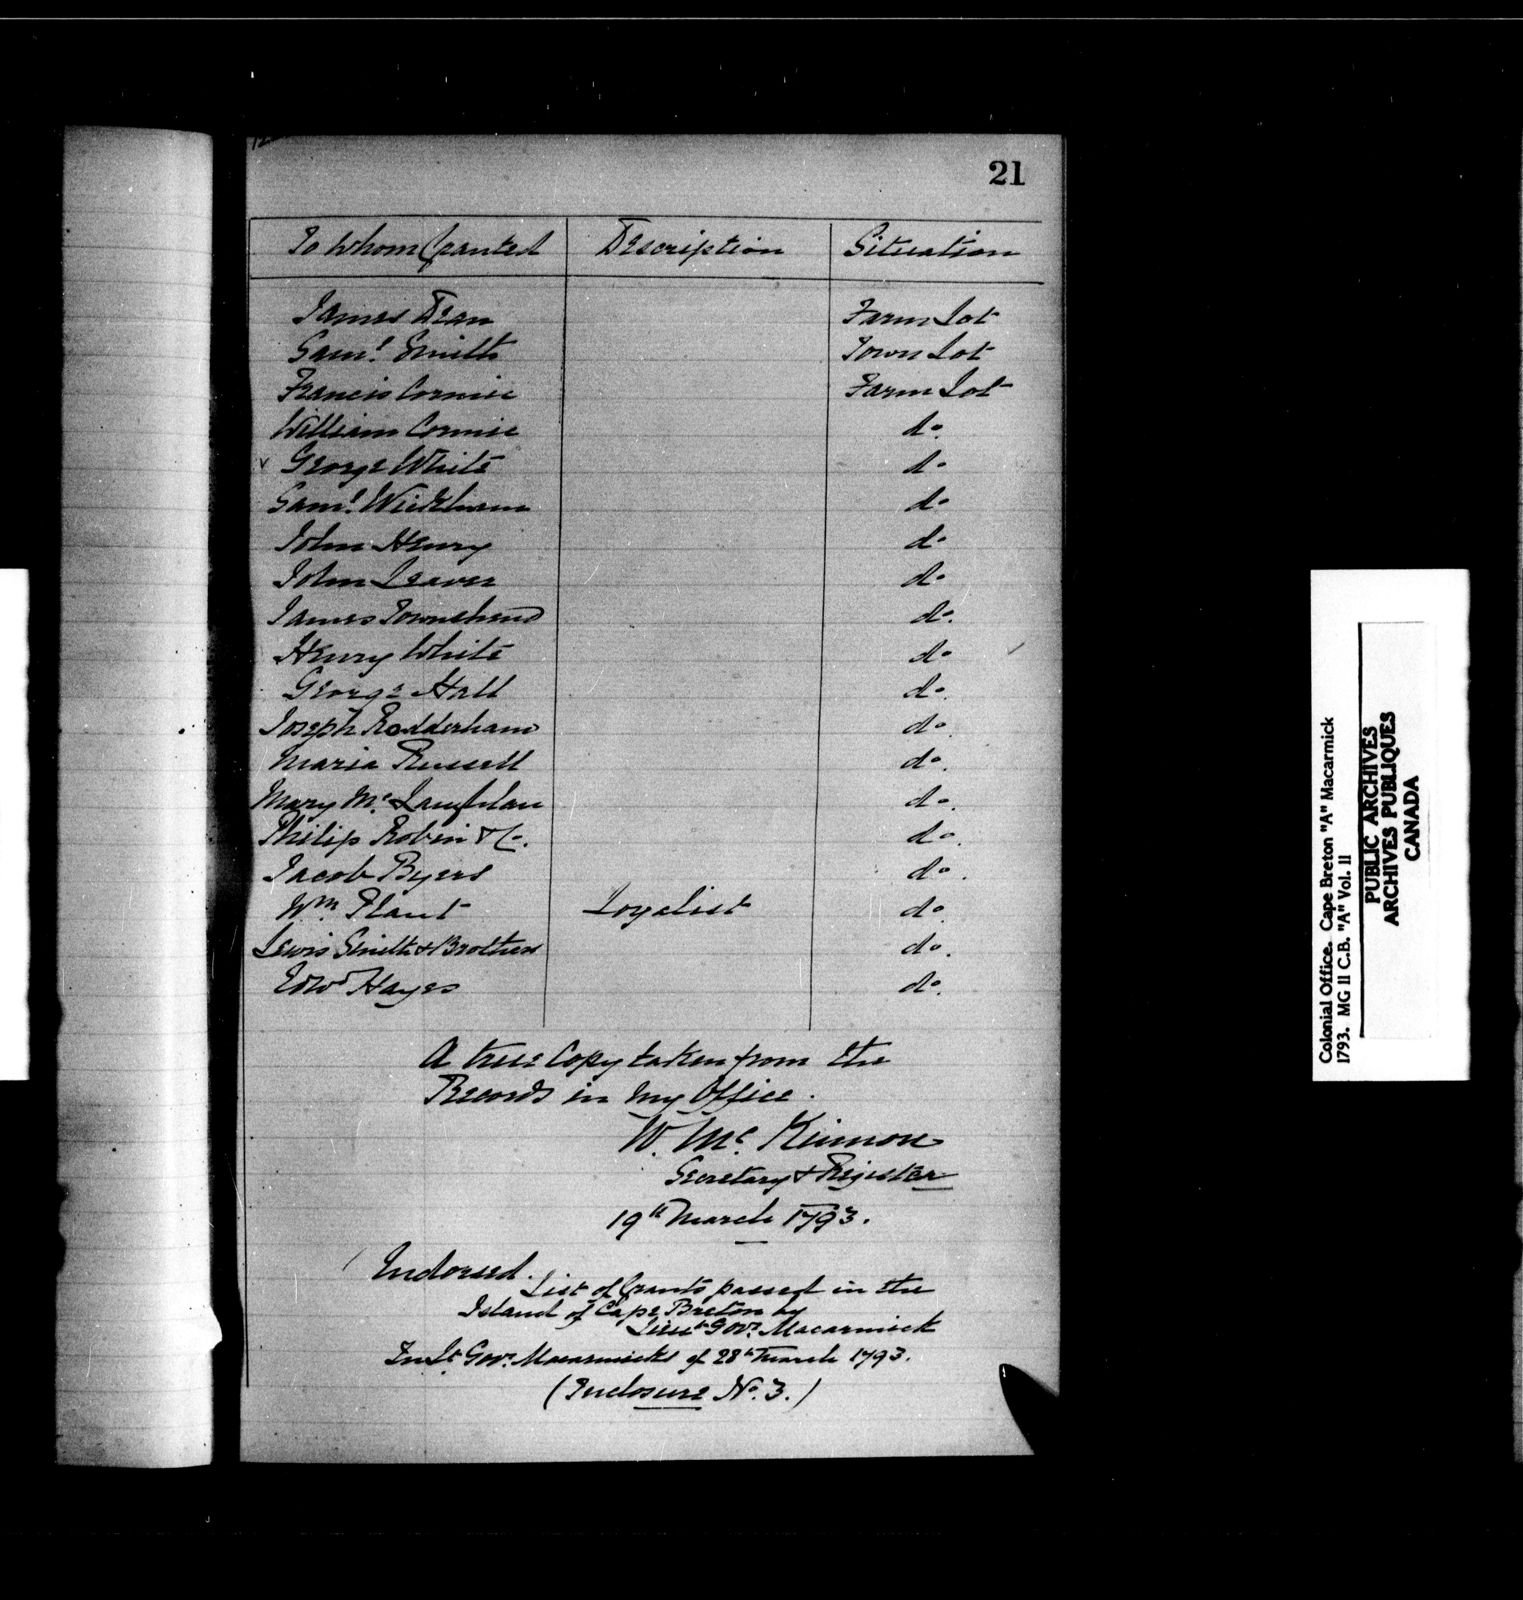 21
To Whom Granted Description Situation
James Dean Farm Lot
Saml. Smith Town Lot
Francis Cormie Farm Lot
William Cormie do.
George White do
Saml. Wickham do
John Henry do
John Leaver do
James Townshend do.
Henry White do
George Hall do.
Joseph Rodderham do.
Maria Russell do.
Mary Mc. Laughlan do.
Philip Robin & Co. do.
Jacob Byers do.
Wm Plant Loyalist do.
Lewis Smith & Brothers do.
Edwd Hayes do.
A true Copy taken from the
Records in my Office.
W. Mc. Kinnon
Secretary & Register
19th March 1793.
Endorsed.
List of Grants passed in the
Island of Cape Breton by
Lieut Govr. Macarmick
In Lt. Govr. Macarmicks of 28th March 1793.
(Inclosure No. 3.)
Colonial Office. Cape Breton "A" Macarmick
1793. MG 11 C.B. "A" Vol. 11
PUBLIC ARCHIVES
ARCHIVES PUBLIQUES
CANADA